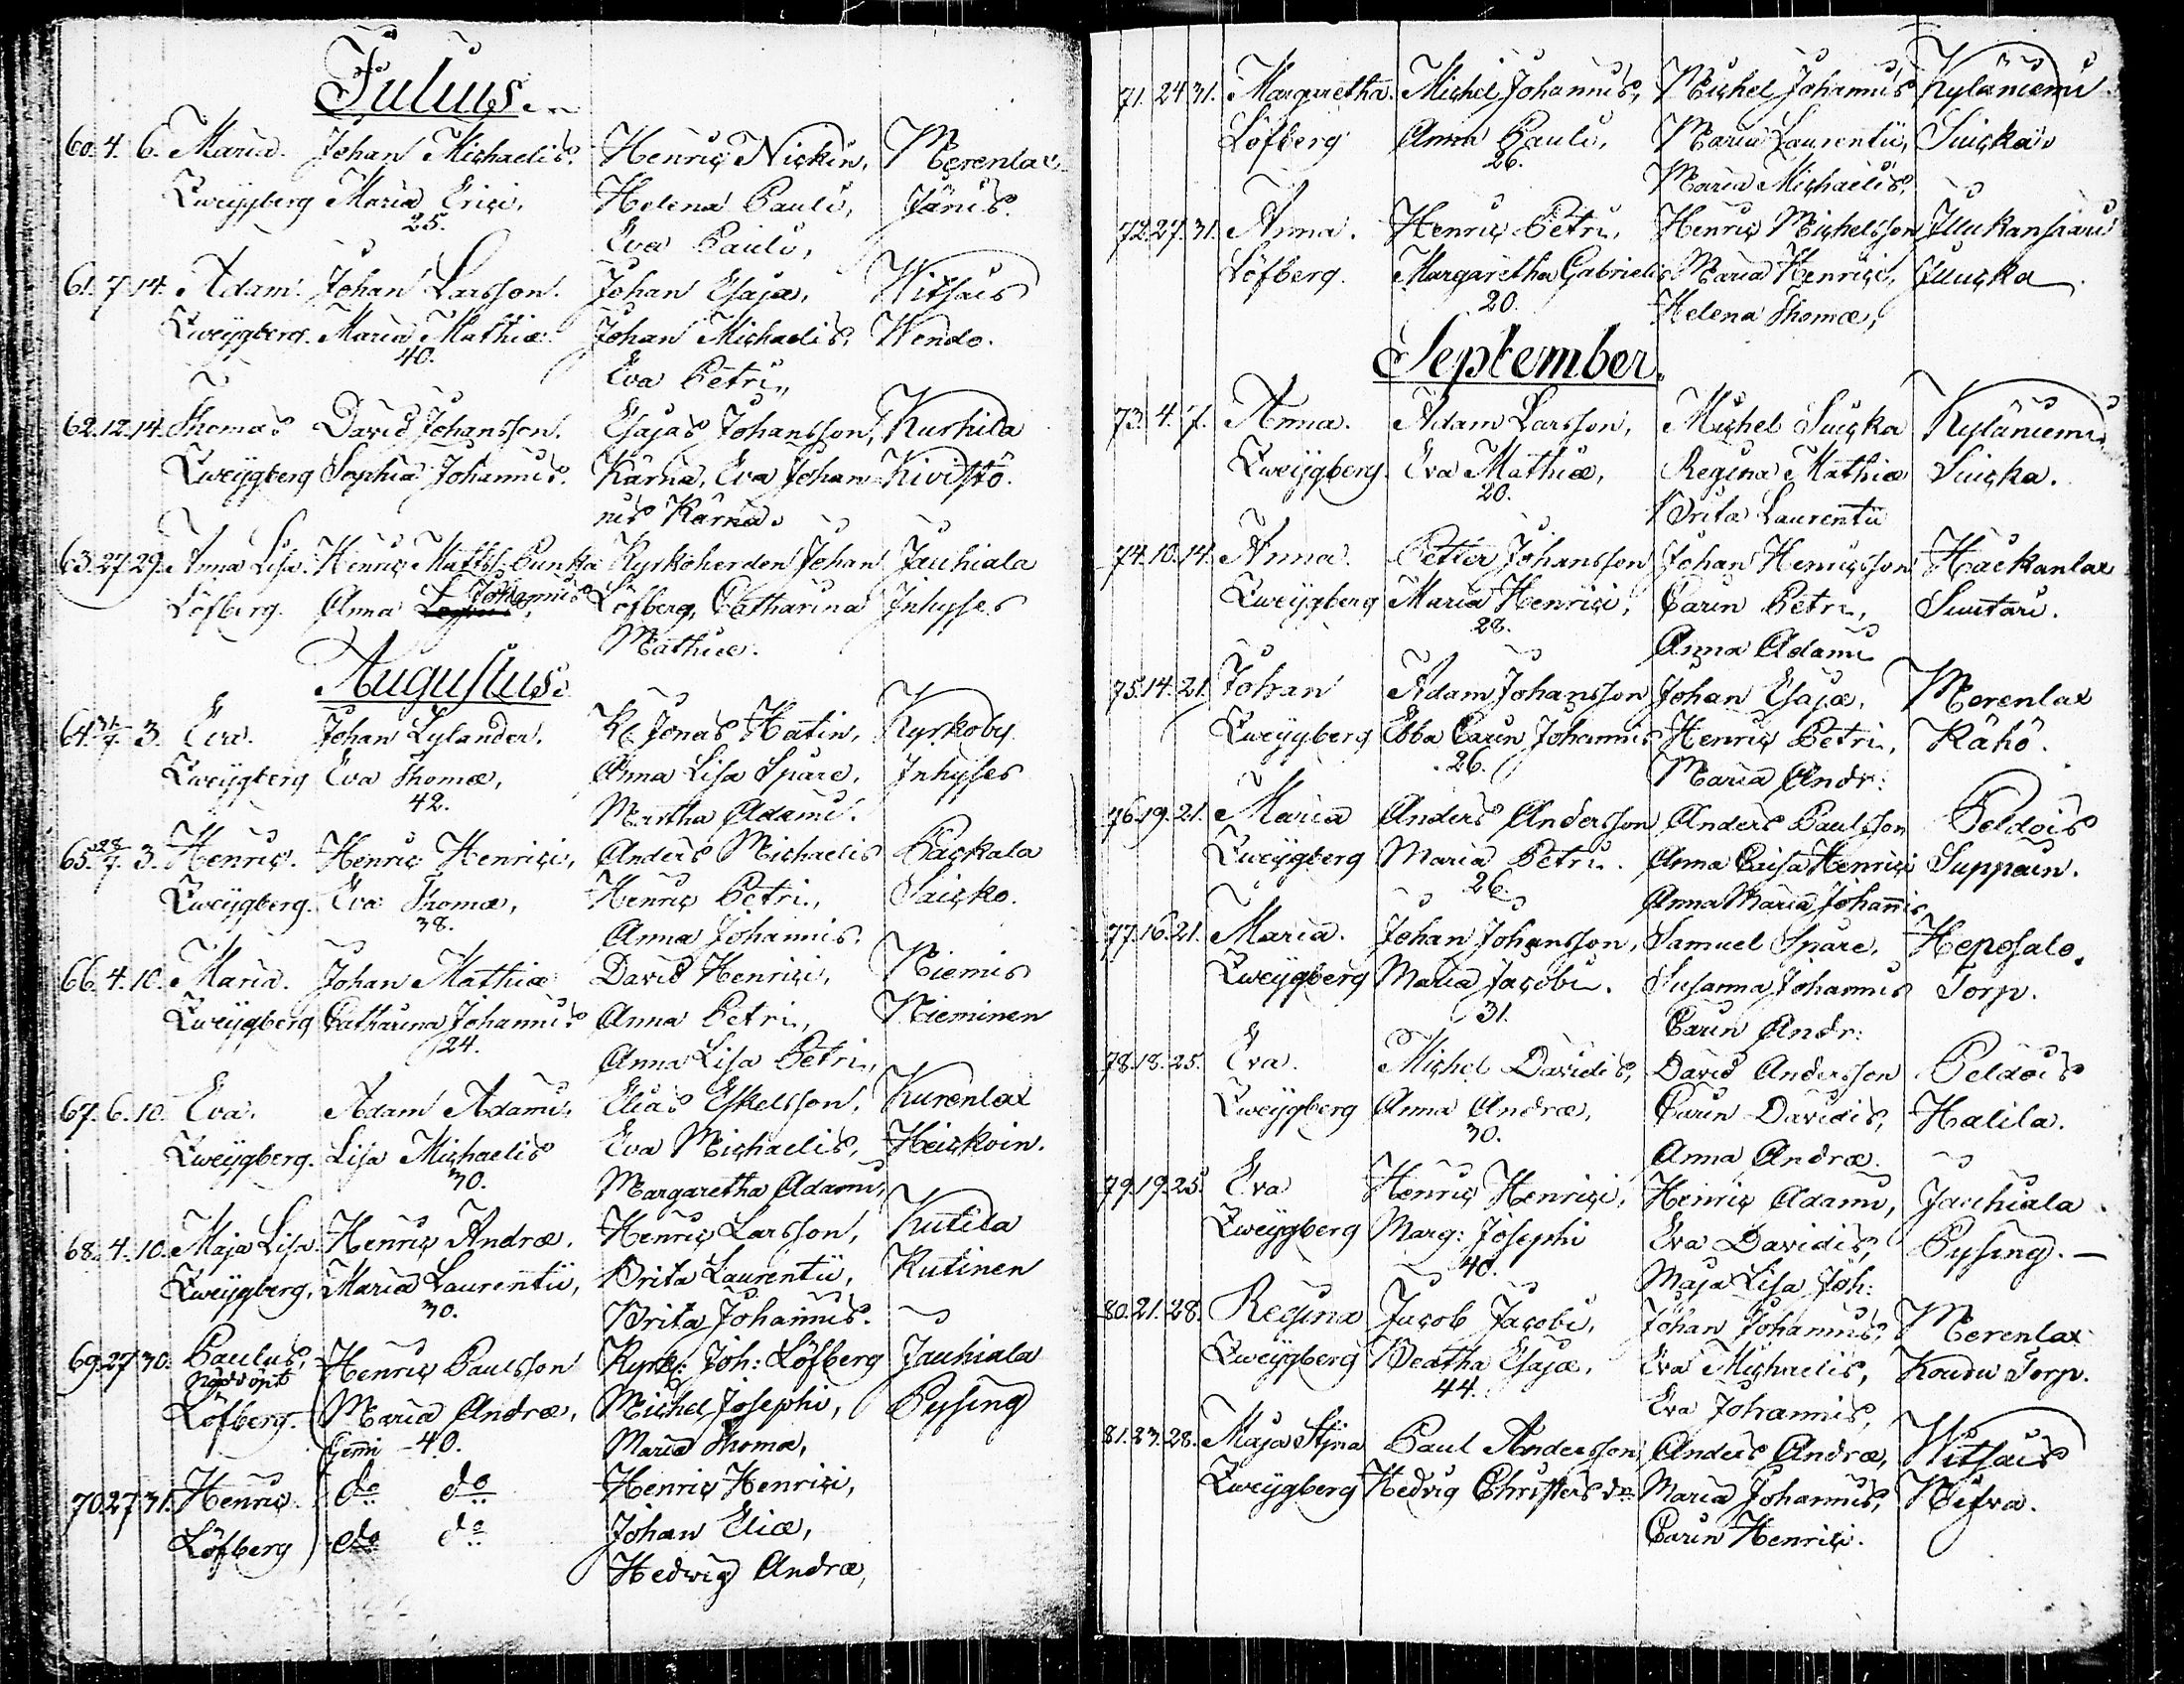 Julius.
60. 4. 6. Maria. Johan Michaelis. Henric Nickin, Merenlax
Zweygberg Maria Erici, Helena Pauli, Jänis.
25. Eva Pauli,
61. 7. 14. Adam. Johan Larsson. Johan Esajæ, Witsais
Zweygberg. Maria Mathiæ. Johan Michaelis, Wendo.
40. Eva Petri,
62. 12. 14. Thomas David Johansson. Esajas Johansson, Kurhila
Zweygberg Sophia Johannis. Kärnä, Eva Johan- Kivistö.
nis Kärnä.
63. 27. 29. Anna Lisa. Henric Matts. Punka Kyrkoherden Johan Jauhiala
Johannis
Löfberg. Anna Löfberg, Catharina Inhyses
Mathiæ.
Augustus.
64. 31/7. 3. Eva. Johan Lylander. Kl. Jonas Hatin, Kyrkoby
Zweygberg Eva Thomæ, Anna Lisa Spare, Inhyses
42. Martha Adami.
65. 28/7. 3. Henric. Henric Henrici, Anders Michaelis Packala
Zweygberg. Eva Thomæ, Henric Petri, Saicko.
38. Anna Johannis.
66. 4. 10. Maria. Johan Mathiæ David Henrici, Niemis
Zweygberg Catharina Johannis Anna Petri, Nieminen
24. Anna Lisa Petri,
67. 6. 10. Eva. Adam Adami. Elias Eskelsson, Kurenlax
Zweygberg. Lisa Michaelis Eva Michaelis, Heickoin.
30. Margaretha Adami,
68. 4. 10. Maja Lisa. Henric Andræ. Henric Larsson, Kutila
Zweygberg. Maria Laurentii, Brita Laurentii, Kutinen
30. Brita Johannis.
69. 27. 30. Paulus, Henric Paulsson Kyrk: Joh: Löfberg Jauhiala
Nöddöpt
Löfberg. Maria Andræ, Michel Josephi, Pysing
Gemi - 40. Maria Thomæ,
70. 27. 31. Henric do do Henric Henrici,
Löfberg do do Johan Eliæ,
Hedwig Andræ,
71. 24. 31. Margaretha. Michel Johannis, Michel Johannis Kyläniemi
Löfberg Anna Pauli, Maria Laurentii, Suicka.
26. Maria Michaelis,
72. 27. 31. Anna. Henric Petri, Henric Michelsson
Löfberg. Margaretha Gabrielis Maria Henrici,
20. Helena Thomæ,
September.
73. 4. 7. Anna. Adam Larsson, Michel Suicka Kyläniemi
Zweygberg. Eva Mathiæ, Regina Mathiæ Suicka.
20. Brita Laurentii
74. 10. 14. Anna. Petter Johansson Johan Henricsson Häckanlax
Zweygberg Maria Henrici, Carin Petri, Suutari.
28. Anna Adami
75. 14. 21. Johan Adam Johansson Johan Esajæ, Merenlax
Zweygberg Ebba Carin Johannis Henric Petri, Kähö.
26. Maria Andr:
76. 19. 21. Maria Anders Andersson Anders Paulsson Peldois
Zweygberg Maria Petri. Anna Caisa Henrici Suppoin.
26. Anna Maria Johannis
77. 16. 21. Maria. Johan Johansson, Samuel Spare, Heposalo.
Zweygberg Maria Jacobi. Susanna Johannis Torp.
31. Carin Andr:
78. 18. 25. Eva. Michel Davidis, David Andersson Peldois
Zweygberg Anna Andræ, Carin Davidis, Halila.
30. Anna Andræ.
79. 19. 25. Eva Henric Henrici, Henric Adami, Jauhiala
Zweygberg Marg: Josephi Eva Davidis, Pysing. —
40. Maja Lisa Joh:
80. 21. 28. Regina Jacob Jacobi, Johan Johannis, Merenlax
Zweygberg Beatha Esajæ, Eva Michaelis, Koudu Torp.
44. Eva Johannis,
81. 23. 28. Maja Stina Paul Andersson Anders Andræ, Witsais
Zweygberg Hedvig Christersdr. Maria Johannis,
Carin Henrici.